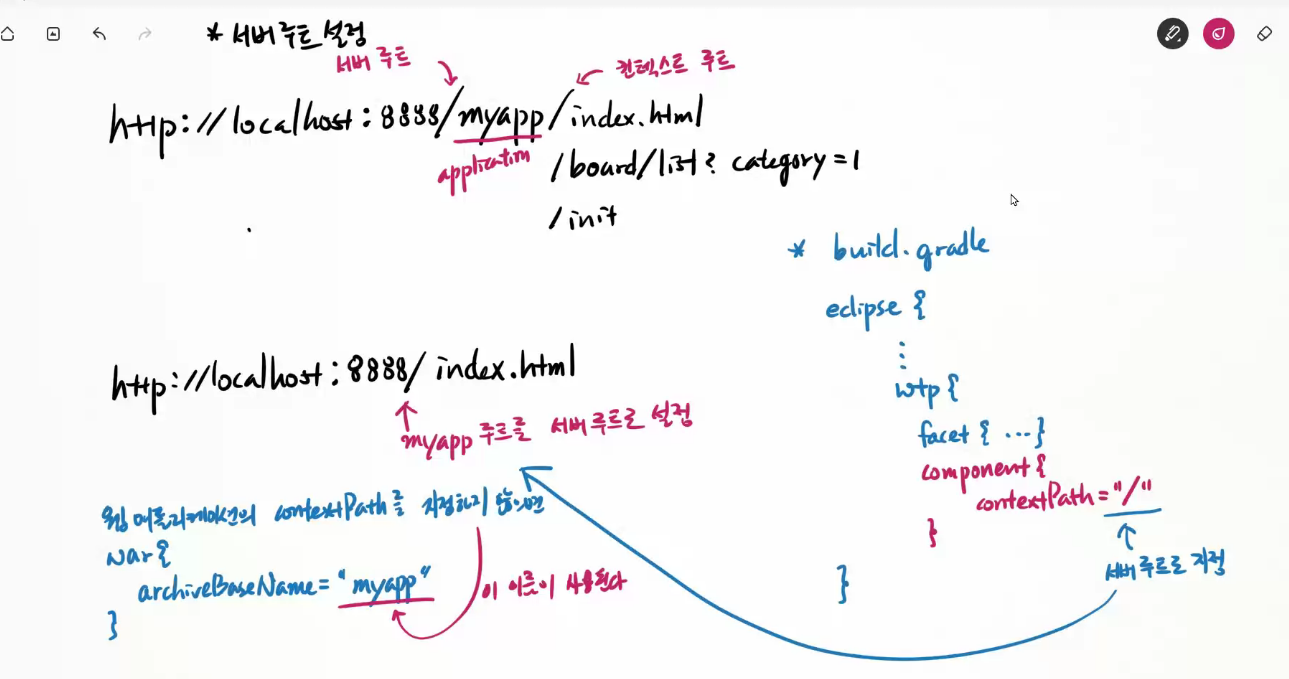 * 서버 루트 설정
서버 루트
컨텍스트 루트
http://localhost:8888/myapp/index.html
application
/board/list?category=1
/init
http://localhost:8888/index.html
myapp 루트를 서버루트로 설정
웹 어플리케이션의 contextPath를 지정하지 않으면
war{
archiveBaseName="myapp"
}
이 이름이 사용된다
* build.gradle
eclipse {
⋮
wtp {
facet { ...}
component {
contextPath="/"
}
서버루트로 지정
}